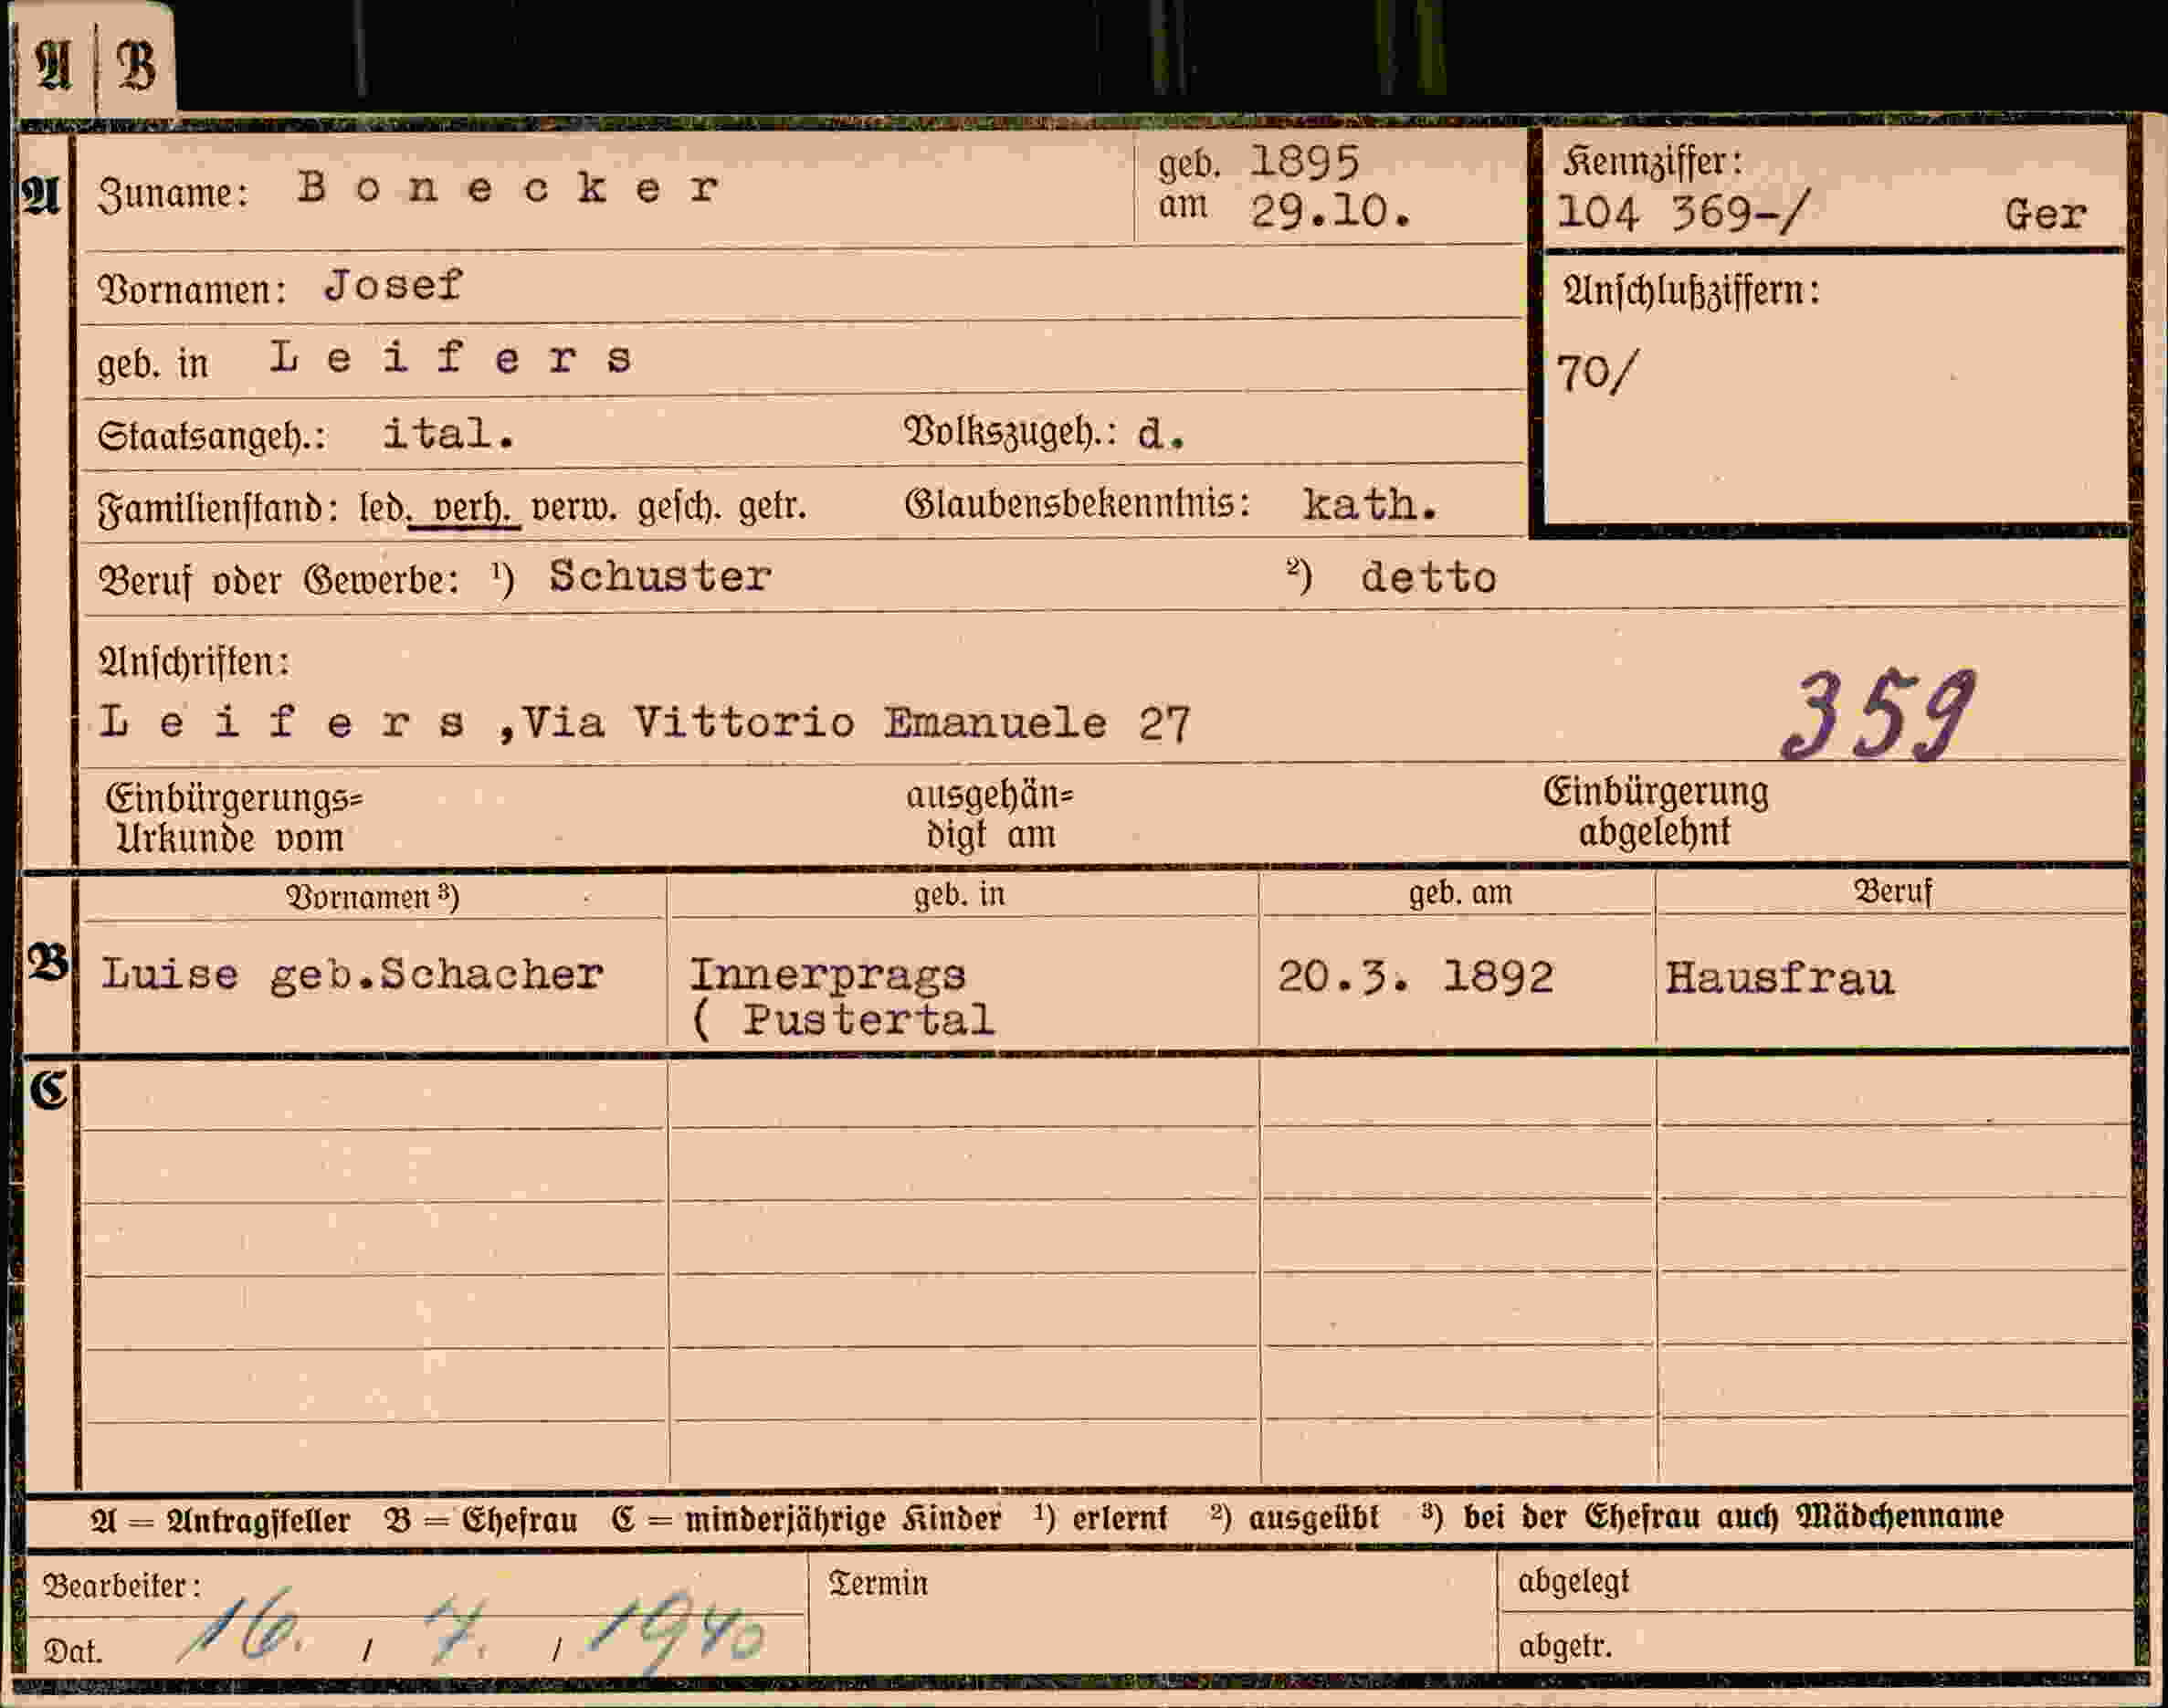 A | B
A
Zuname: B o n e c k e r
geb. 1895
am 29.10.
Kennziffer:
104 369-/ Ger
Vornamen: Josef
Anschlußziffern:
geb. in L e i f e r s
70/
Staatsangeh.: ital. Volkszugeh.: d.
Familienstand: led. verh. verw. gesch. getr. Glaubensbekenntnis: kath.
Beruf oder Gewerbe: ¹) Schuster ²) detto
Anschriften:
L e i f e r s ,Via Vittorio Emanuele 27
359
Einbürgerungs=
Urkunde vom
ausgehän=
digt am
Einbürgerung
abgelehnt
B
Vornamen ³) geb. in geb. am Beruf
Luise geb.Schacher Innerprags 20.3. 1892 Hausfrau
( Pustertal
C
A = Antragsteller B = Ehefrau C = minderjährige Kinder ¹) erlernt ²) ausgeübt ³) bei der Ehefrau auch Mädchenname
Bearbeiter: Termin abgelegt
Dat. 16. / 7. / 1940 abgetr.